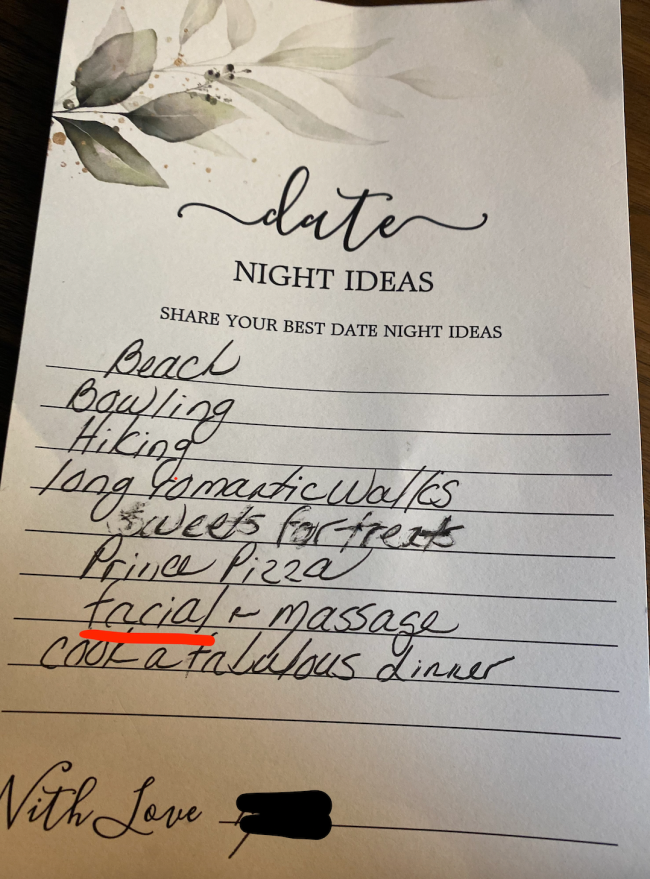 date
NIGHT IDEAS
SHARE YOUR BEST DATE NIGHT IDEAS
Beach
Bowling
Hiking
long romantic walks
sweets for treats
Prince Pizza
facial & massage
cook a fabulous dinner
With Love